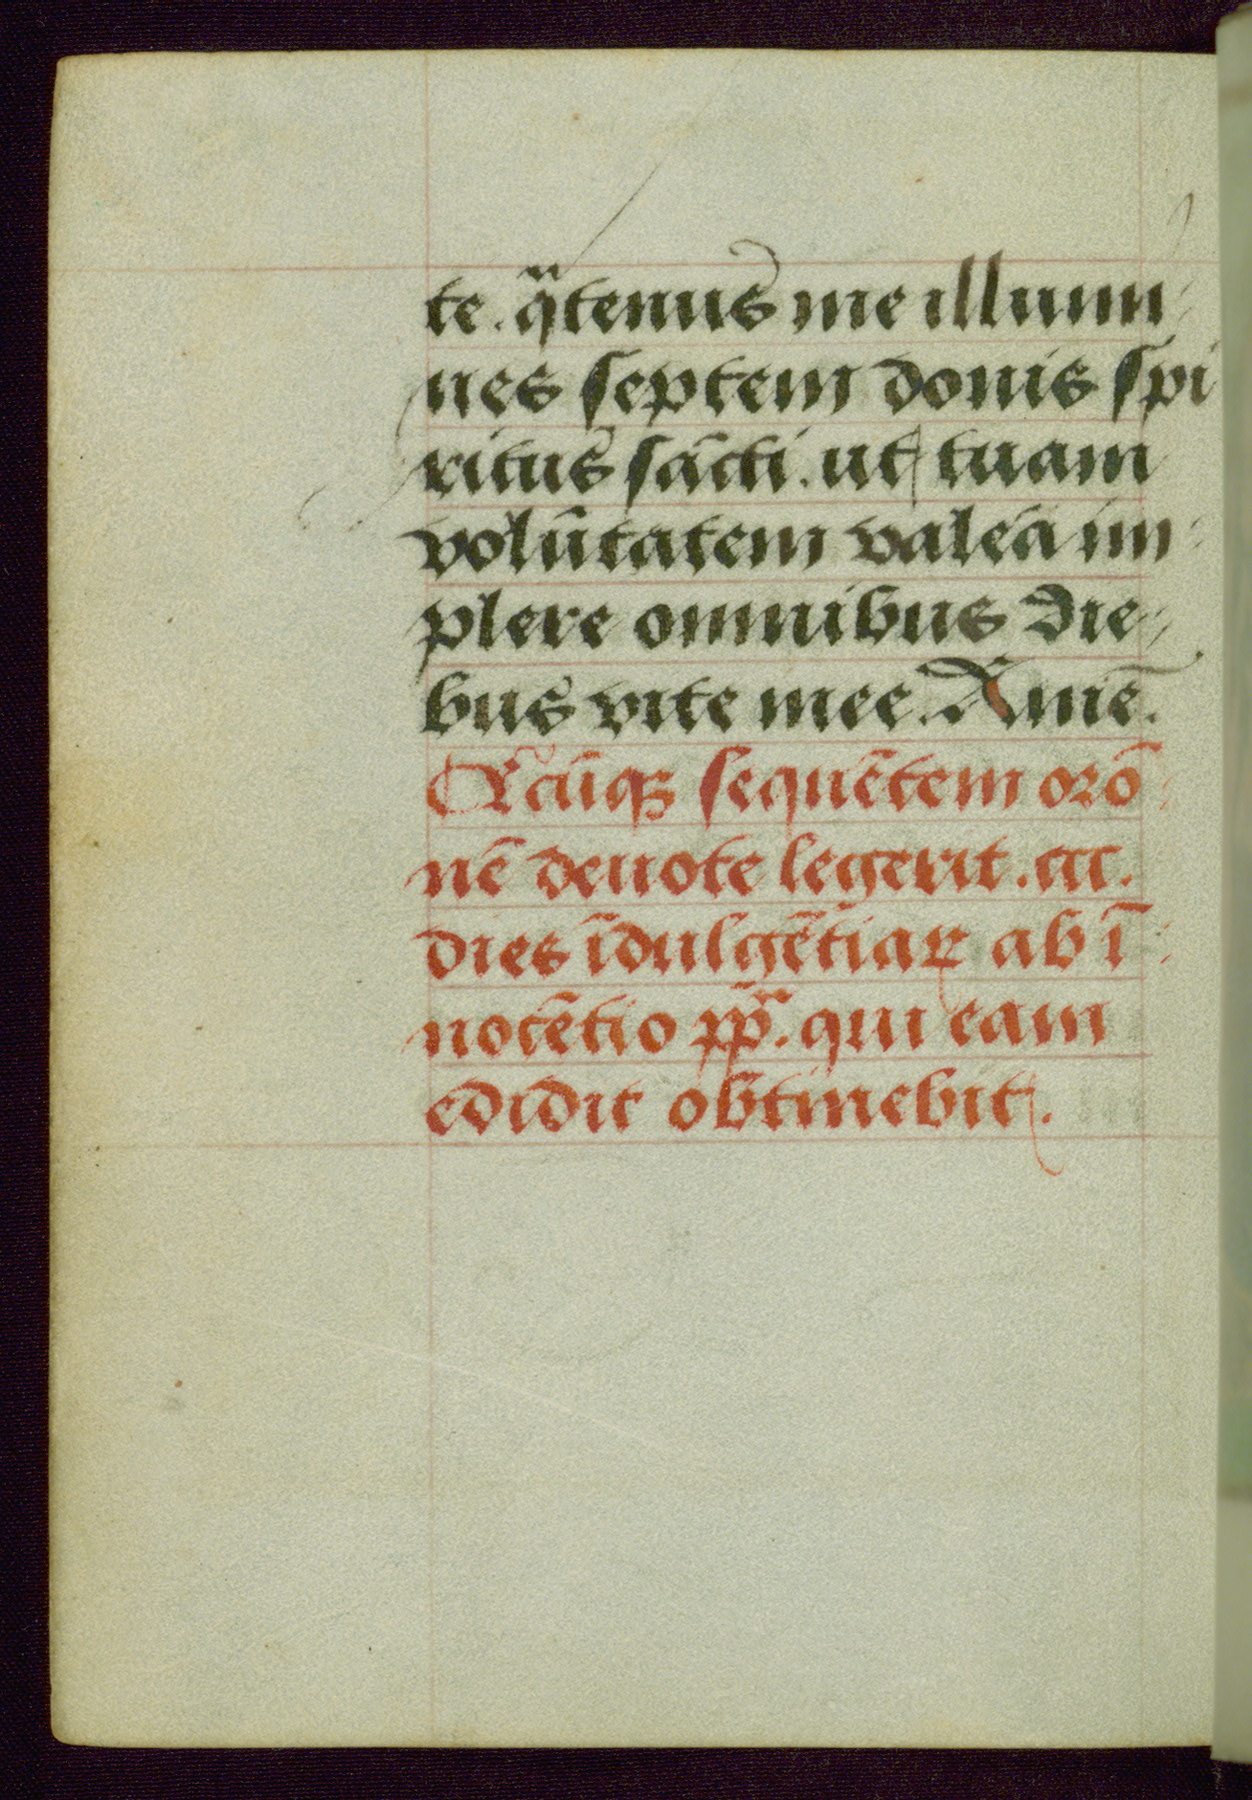 te. qᵃtenus me illumi-
nes septem donis spi
ritus sācti. ut tuam
volūtatem valeā im-
plere omnibus die-
bus vite mee. Amē.
Qͥcūqꝫ sequētem orō-
nē deuote legerit .ccc.
dies īdulgētiaꝝ ab ī-
nocētio pp̄ᵃ. qui eam
edidit obtinebit.